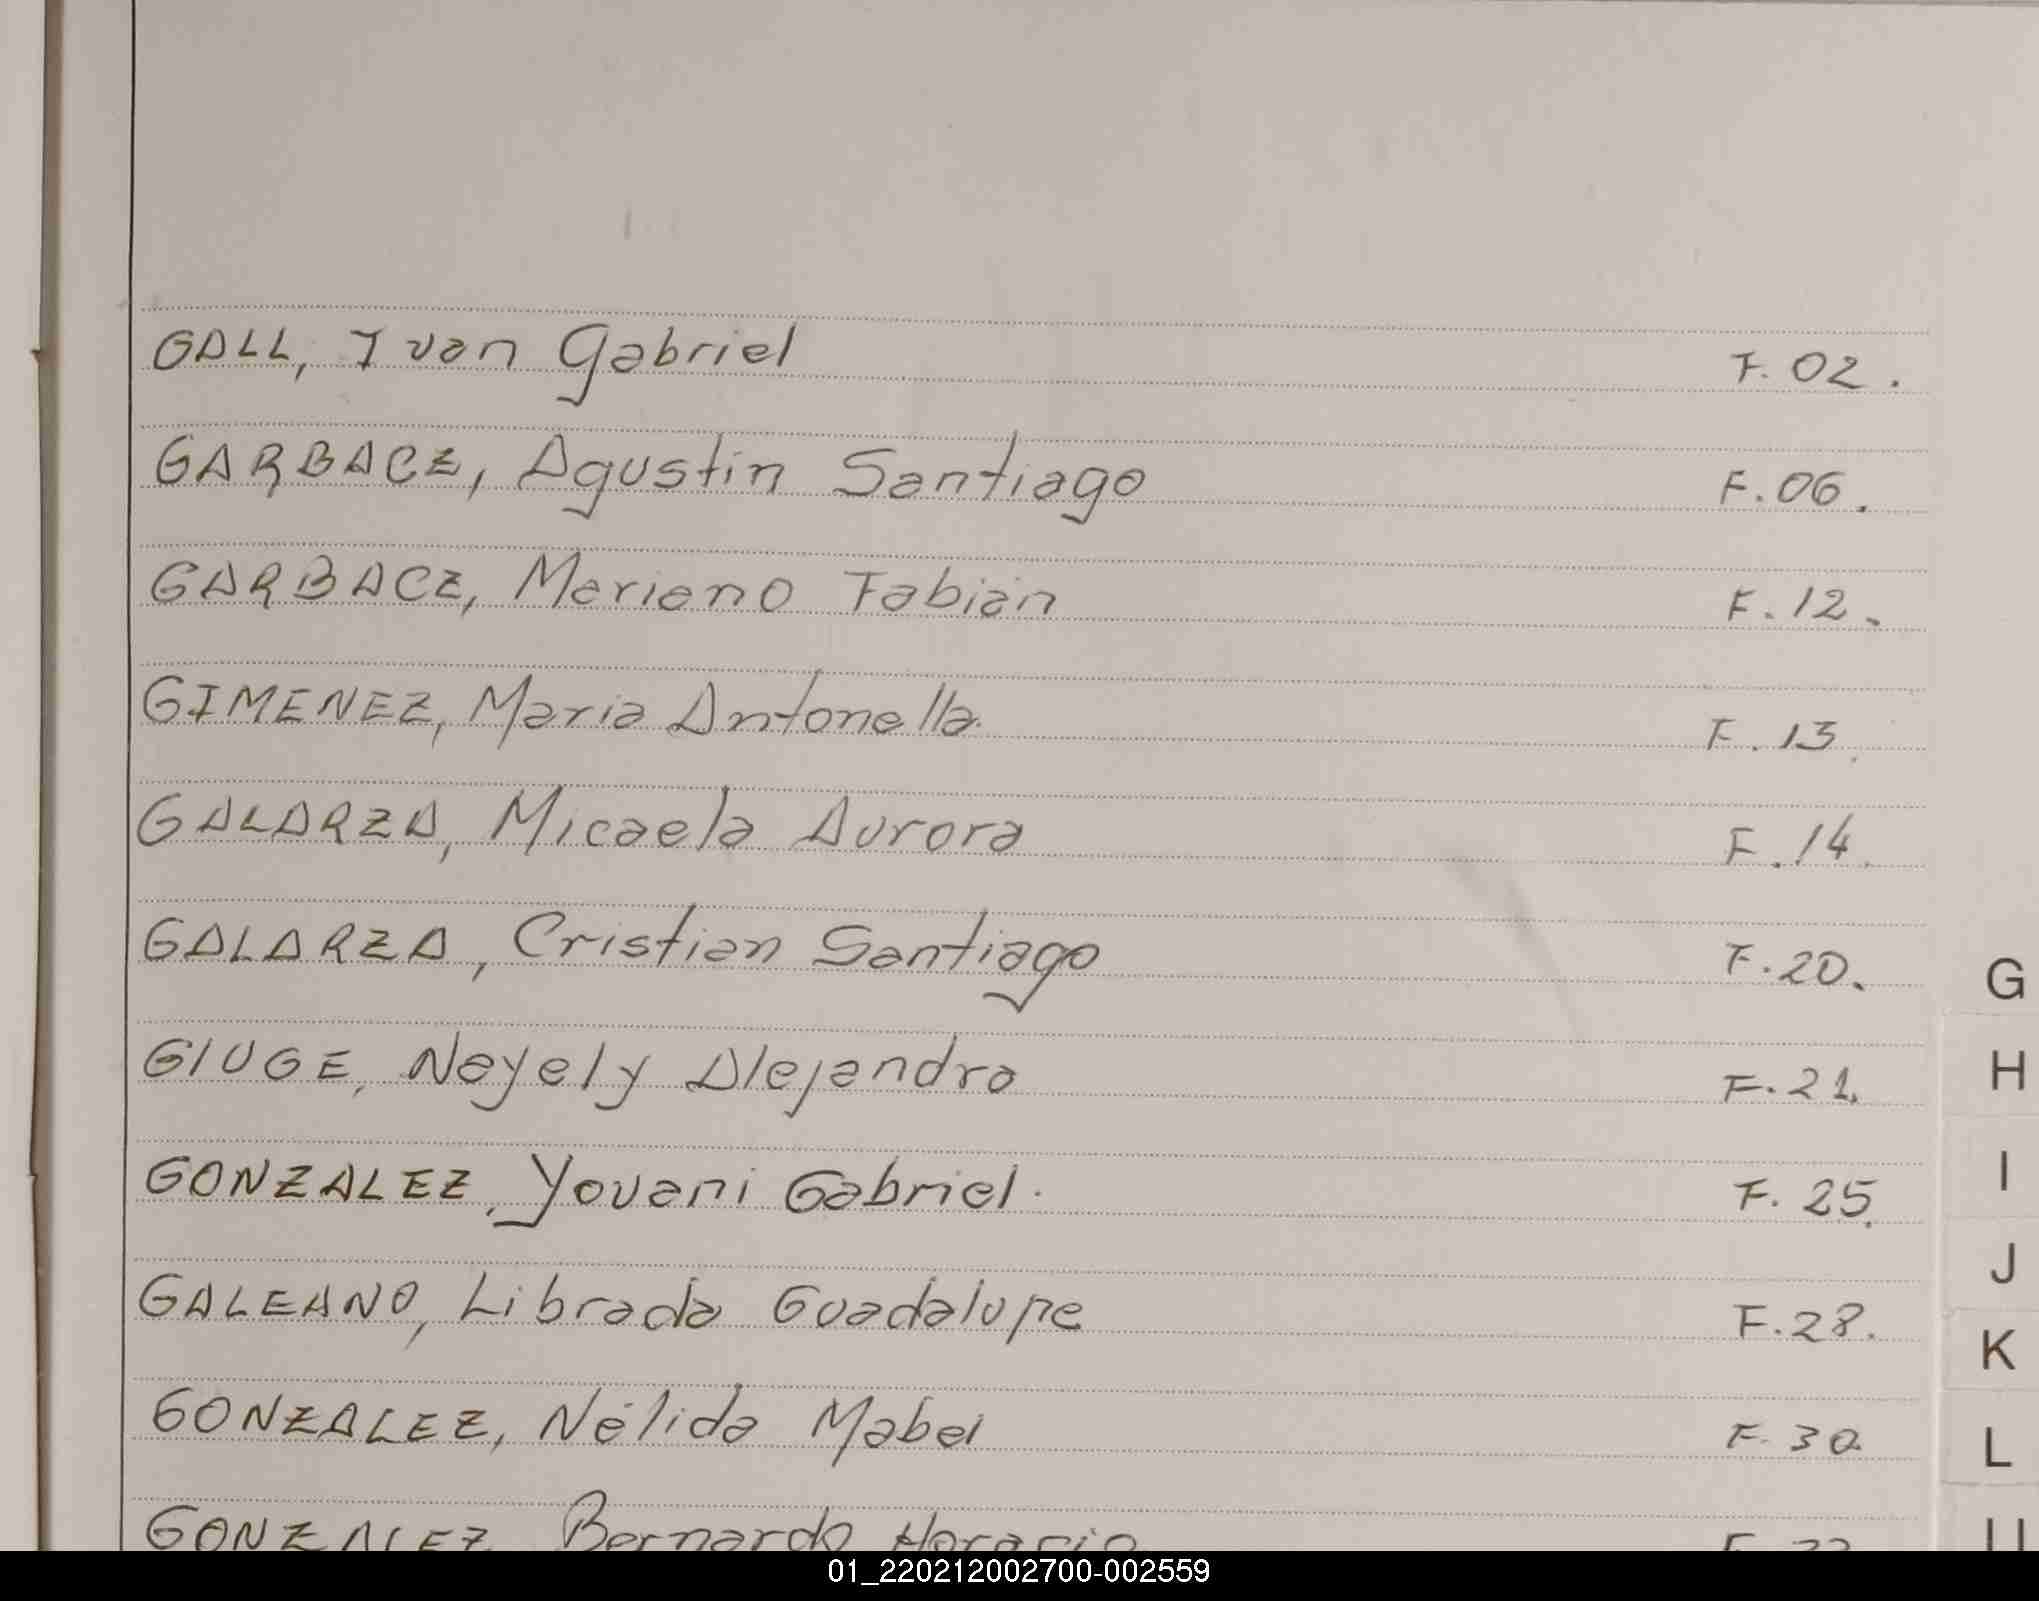 GALL, Ivan Gabriel F. 02.
GARBACZ, Agustin Santiago F. 06.
GARBACZ, Mariano Fabián F. 12.
GIMENEZ, Maria Antonella. F. 13.
GALARZA, Micaela Aurora F. 14.
GALARZA, Cristian Santiago F. 20.
GIUGE, Nayely Alejandra F. 21.
GONZALEZ, Yovani Gabriel. F. 25.
GALEANO, Librada Guadalupe F. 28.
GONZALEZ, Nélida Mabel F. 30.
GONZALEZ Bernardo Horacio F.
G
H
I
J
K
L
01_220212002700-002559